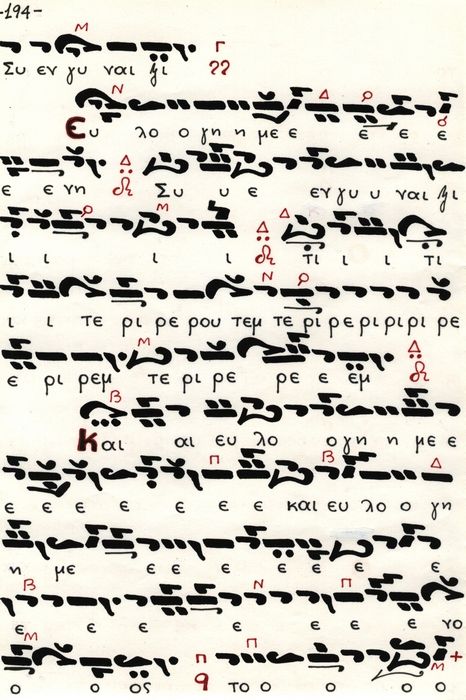 -194-
Συ εν γυ ναι ξι
Ευ λο ο γη η με ε ε ε ε
ε ε νη Συ υ ε εν γυ υ ναι ξι
ι ι ι ι τι ι ι τι
ι ι τε ρι ρε ρου τεμ τε ρι ρε ρι ρι ρι ρε
ε ρι ρεμ τε ρι ρε ρε ε εμ
Και αι ευ λο ο γη η με ε
ε ε ε ε ε ε ε και ευ λο ο γη
η με ε ε ε ε ε ε
ε ε ε ε ε ε ε νο
ο ο ος το ο ο ο ο